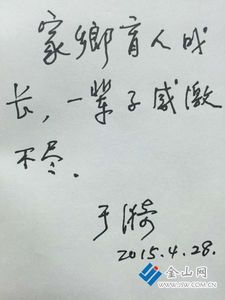 家鄉育人成
长，一辈子感激
不尽.
于漪
2015.4.28.
金山网
www.jsw.com.cn